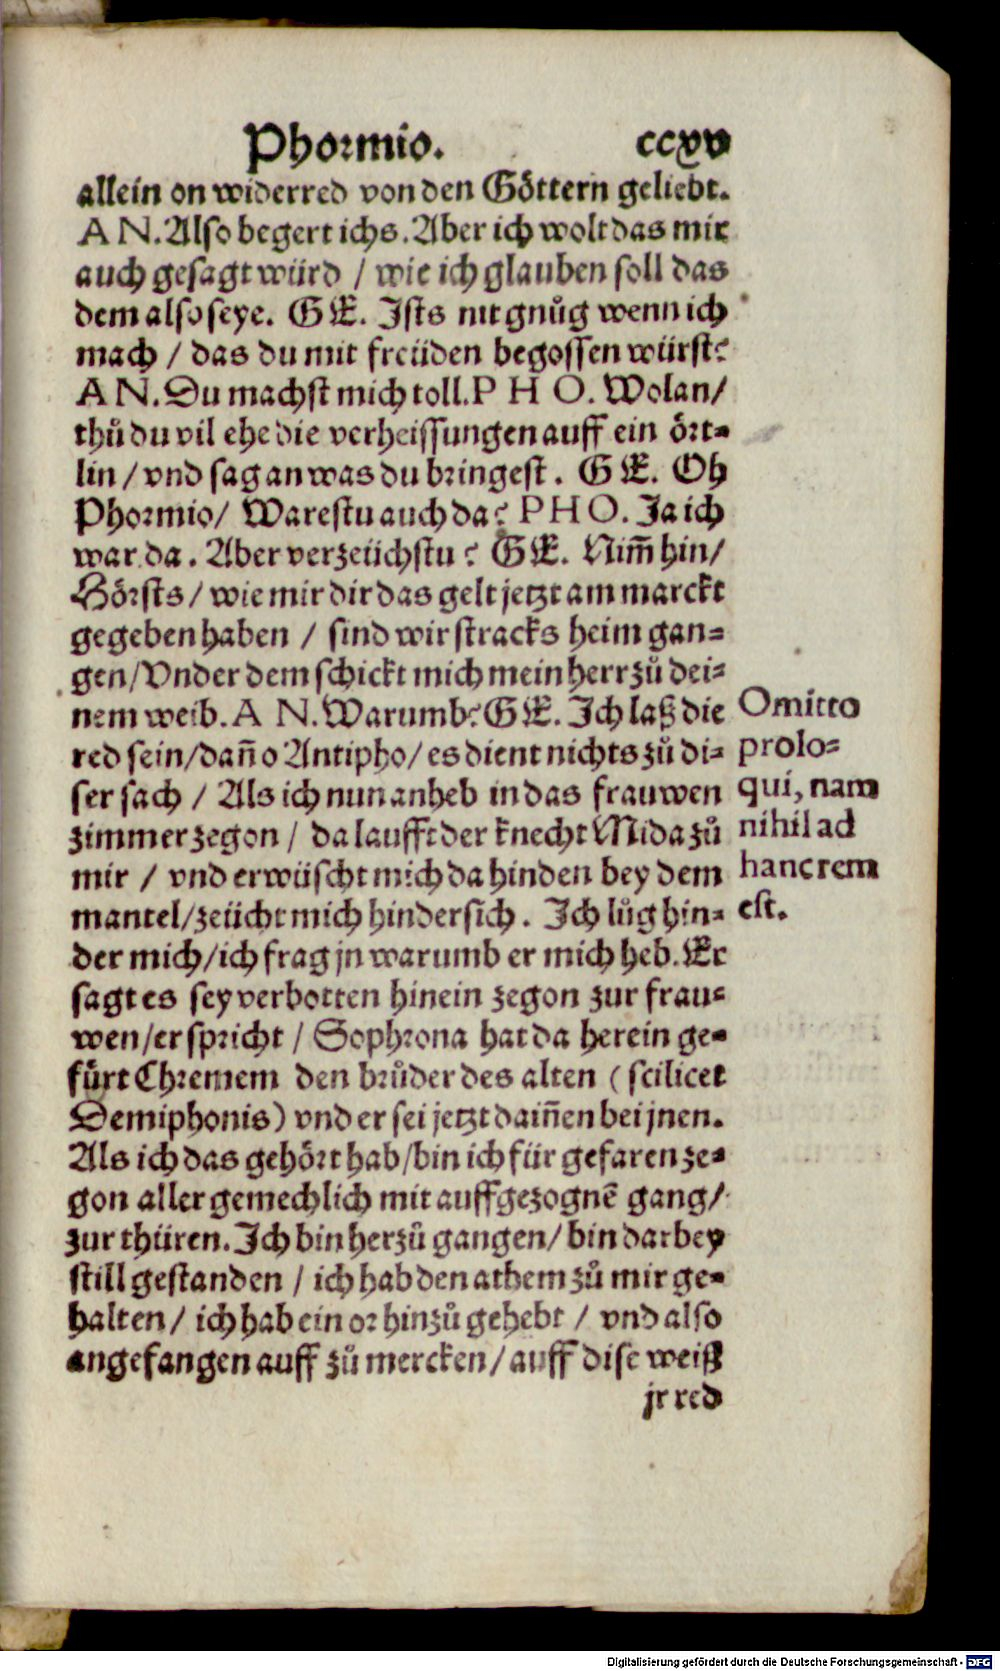 Phormio. ccxv
allein on widerred von den Göttern geliebt.
AN. Also begert ichs. Aber ich wolt das mir
auch gesagt würd / wie ich glauben soll das
dem also seye. GE. Ists nit gnůg wenn ich
mach / das du mit freüden begossen würst?
AN. Du machst mich toll. PHO. Wolan/
thů du vil ehe die verheissungen auff ein ört=
lin / vnd sag an was du bringest. GE. Oh
Phormio/ Warestu auch da? PHO. Ja ich
war da. Aber verzeüchstu? GE. Nim̃ hin/
Hörsts / wie mir dir das gelt jetzt am marckt
gegeben haben / sind wir stracks heim gan=
gen/Vnder dem schickt mich mein herr zů dei=
nem weib. AN. Warumb? GE. Ich laß die
red sein/dañ o Antipho/ es dient nichts zů di=
ser sach / Als ich nun anheb in das frauwen
zimmer zegon / da laufft der knecht Mida zů
mir / vnd erwüscht mich da hinden bey dem
mantel/zeücht mich hindersich. Ich lůg hin=
der mich/ich frag jn warumb er mich heb. Er
sagt es sey verbotten hinein zegon zur frau=
wen/er spricht / Sophrona hat da herein ge=
fürt Chremem den brůder des alten (scilicet
Demiphonis) vnd er sei jetzt daiñen bei jnen.
Als ich das gehört hab/bin ich für gefaren ze=
gon aller gemechlich mit auffgezognẽ gang/
zur thüren. Ich bin herzů gangen/ bin darbey
still gestanden / ich hab den athem zů mir ge=
halten / ich hab ein or hinzů gehebt / vnd also
angefangen auff zů mercken/ auff dise weiß
jr red
Omitto
prolo=
qui, nam
nihil ad
hanc rem
est.
Digitalisierung gefördert durch die Deutsche Forschungsgemeinschaft - DFG